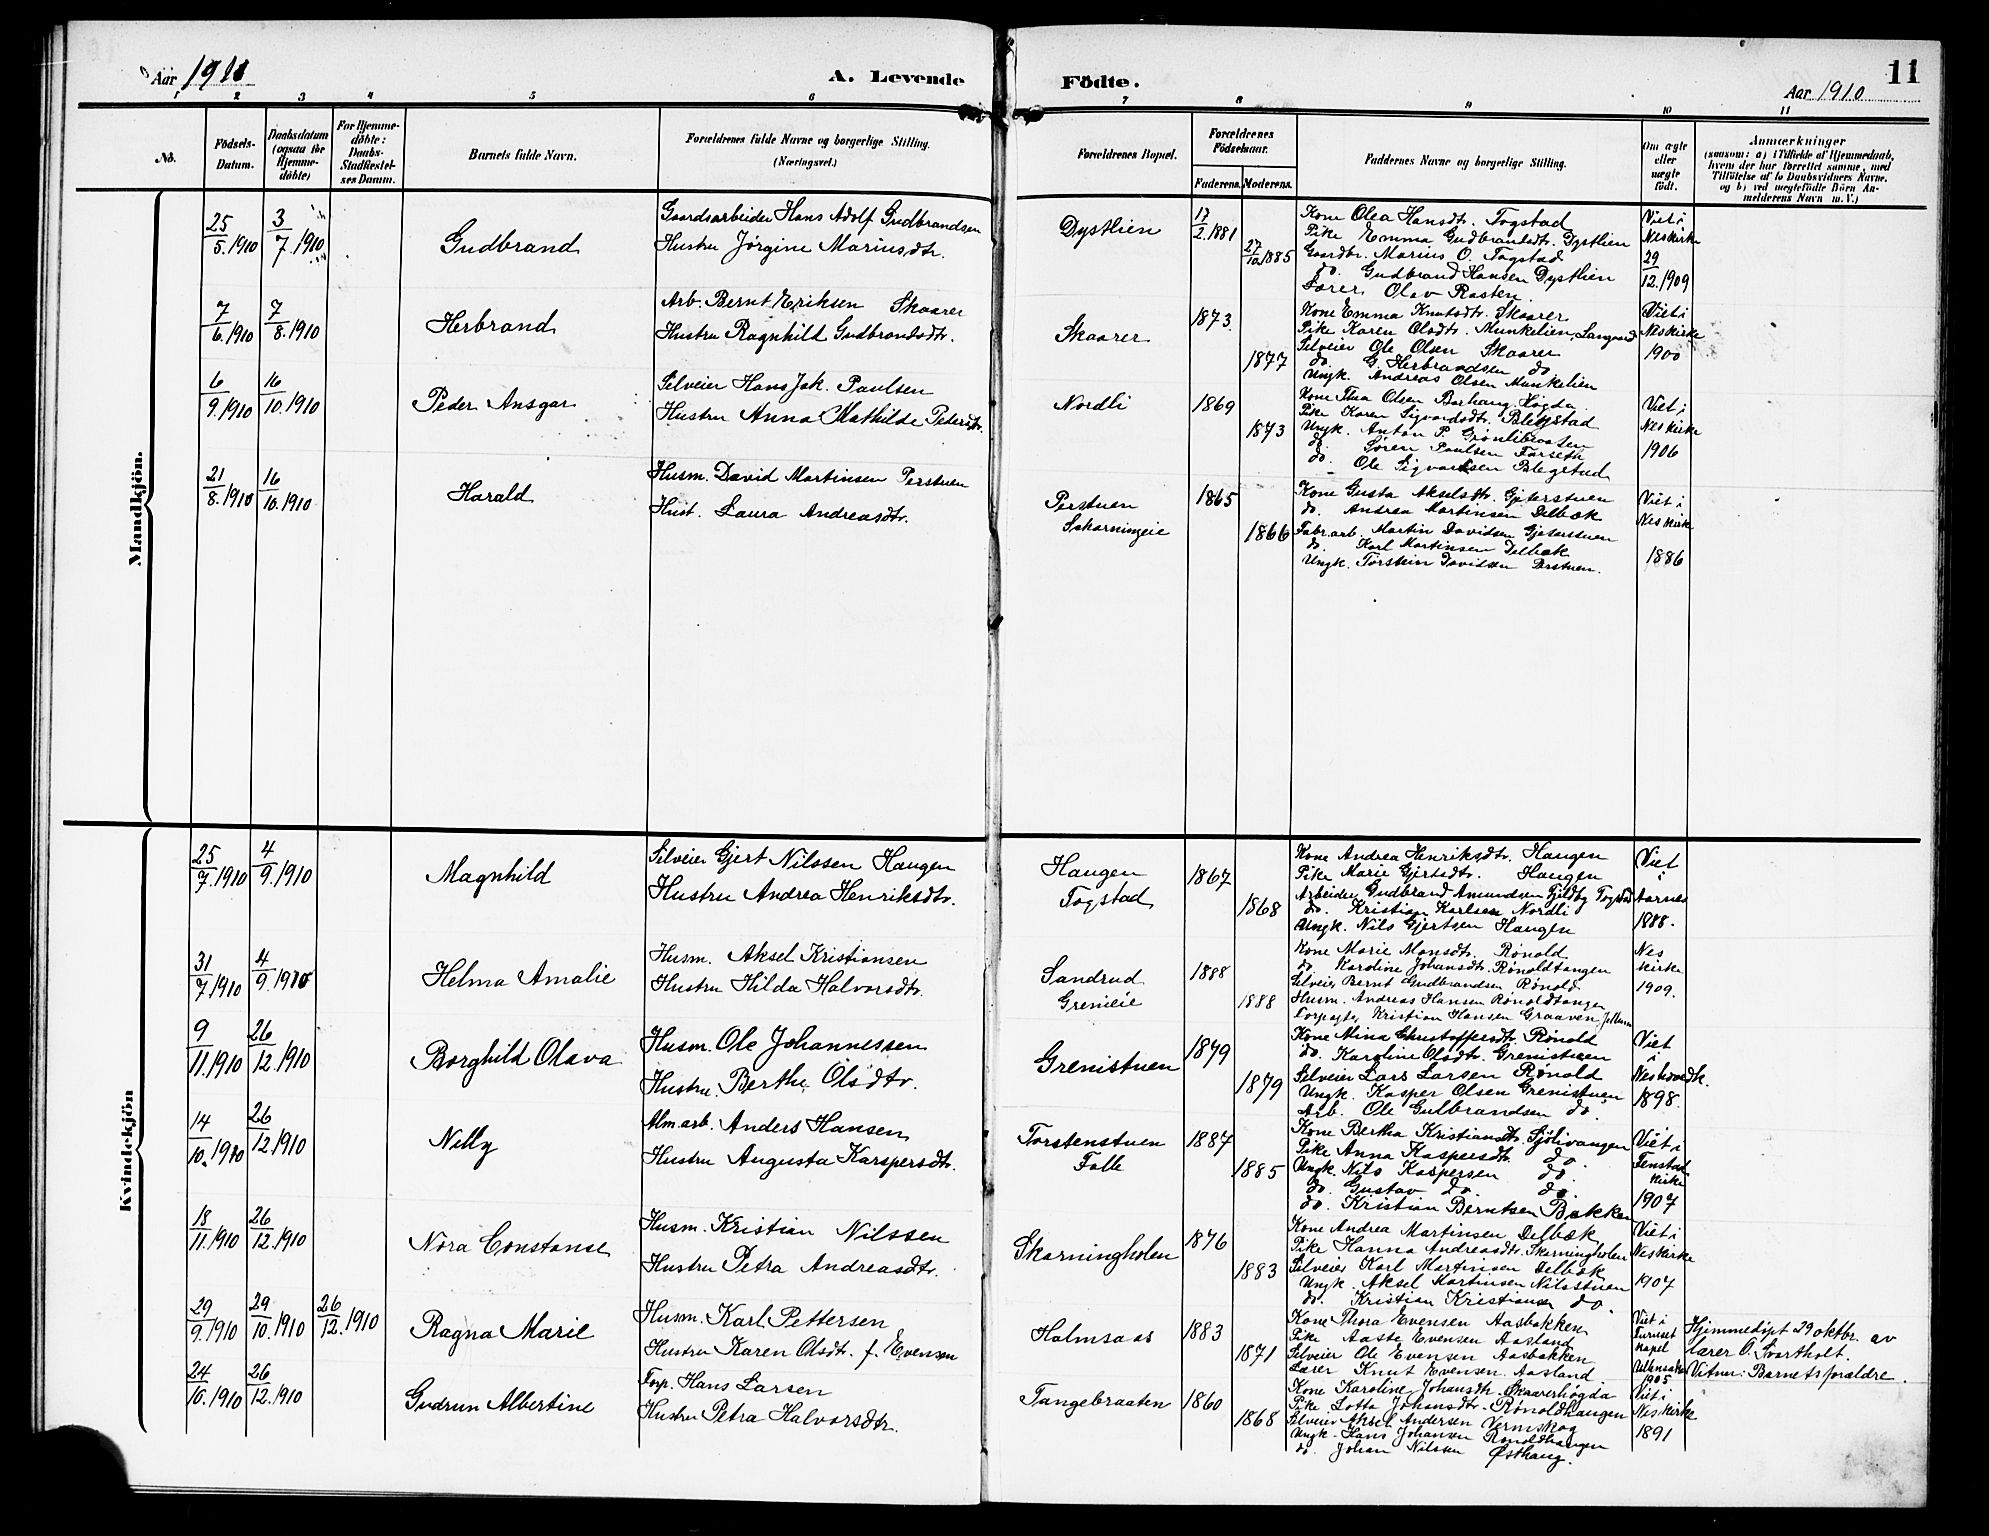 Aar 1910
A. Levende
Födte.
11
Aar 1910
1 2 3 4 5 6 7 8 9 10 11
No.
Födsels-
Datum.
Daabsdatum
(ogsaa for
Hjemme-
döbte)
For Hjemme-
döbte:
Daabs-
Stadfæstel-
ses Datum.
Barnets fulde Navn.
Forældrenes fulde Navne og borgerlige Stilling.
(Næringsvei.)
Forældrenes Bopæl.
Forældrenes
Födselsaar.
Faderens. Moderens.
Faddernes Navne og borgerlige Stilling.
Om ægte
eller
uægte
födt.
Anmærkninger
(saasom: a) i Tilfælde af Hjemmedaab,
hvem der har forrettet samme, med
Tilföielse af to Daabsvidners Navne,
og b) ved uægtefödte Börn An-
melderens Navn m. V.)
Mandkjön.
25/5.1910 3/7.1910 Gudbrand
Gaardsarbeider Hans Adolf Gudbrandsen
Hustru Jørgine Mariusdtr.
Dystlien
17/2.1881
27/10 1885
Kone Olea Hansdtr. Togstad
Pike Emma Gudbrandsdtr. Dystlien
Gaardbr. Marius O. Togstad
do. Gudbrand Hansen Dystlien
Lærer Olav Rasten.
Viet i
Nes kirke
29/12.1909
7/6.1910 7/8.1910 Herbrand
Arb. Bernt Eriksen Skaarer
Hustru Ragnhild Gudbrandsdtr.
Skaarer
1873.
1877
Kone Emma Knutsdtr. Skaarer
Pike Karen Olsdtr. Munkelien, Langvard
Selveier Ole Olsen Skaarer
do G. Herbrandsen do
Ungk. Andreas Olsen Munkelien
Viet i
Nes kirke
1900
6/9.1910 16/10.1910 Peder Ansgar
Selveier Hans Jak. Paulsen
Hustru Anna Mathilde Pedersdtr.
Nordli
1869
1873
Kone Thea Olsen Borhaug Høgda
Pike Karen Sigvardsdtr. Blegstad
Ungk. Anton P. Grønlibraaten
do. Søren Paulsen Farseth
do. Ole Sigvartsen Blegstad
Viet i
Nes kirke
1906
21/8.1910 16/10.1910 Harald
Husm. David Martinsen Perstuen
Hust. Laura Andreasdtr.
Perstuen
Skarningeie
1865
1866
Kone Gusta Akselsdtr. Gjeterstuen
do. Andrea Martinsen Delbæk
Fabr.arb. Martin Davidsen Gjeterstuen
do. Karl Martinsen Delbæk
Ungk. Torstein Davidsen Perstuen.
Viet i
Nes kirke
1886
Kvindekjön
25/7.1910 4/9.1910 Magnhild
Selveier Gjert Nilssen Haugen
Hustru Andrea Henriksdtr.
Haugen
Togstad
1867
1868
Kone Andrea Henriksdtr. Haugen
Pike Marie Gjertsdtr. Haugen
Arbeider Gudbrand Amundsen Fjeldby Togstad
do. Kristian Karlsen Nordli
Ungk. Nils Gjertsen Haugen
Viet
i
Aarnes
1888.
31/7.1910 4/9.1910 Helma Amalie
Husm. Aksel Kristiansen
Hustru Hilda Halvorsdtr.
Sandrud
Grenieie
1888
1888
Kone Marie Monsdtr. Rönold
do. Karoline Johansdtr. Rönoldtangen
Selveier Bernt Gudbrandsen Rönold.
Husm. Andreas Hansen Rönoldtangen
Torpagter Kristian Hansen Graaven
Nes
kirke
1909.
9/11.1910 26/12.1910 Borghild Olava
Husm. Ole Johannessen
Hustru. Berthe Olsdtr.
Grenistuen
1879
1879
Kone Mina Christoffersdtr. Rönold
do. Karoline Olsdtr. Grenistuen
Selveier Lars Larsen Rönold
Ungk. Kasper Olsen Grenistuen
Arb. Ole Gulbrandsen do.
Viet
i
Nes hovedk.
1898.
14/10.1910 26/12.1910 Nelly
Alm.arb. Anders Hansen
Hustru Augusta Karspersdtr.
Torstenstuen
Folle
1887
1885
Kone Bertha Kristiansdtr. Sjölivangen
Pike Anna Kaspersdtr. do.
Ungk. Nils Kaspersen do.
do. Gustav do. do.
do. Kristian Berntsen Bakken
Viet i
Fenstad
kirke
1907
18/11.1910 26/12.1910 Nora Constanse
Husm. Kristian Nilssen
Hustru Petra Andreasdtr.
Skarningholen
1876
1883
Kone Andrea Martinsen Delbæk
Pike Hanna Andreasdtr. Skarningholen
Selveier Karl Martinsen Delbæk
Ungk. Aksel Martinsen Nilsstuen
do. Kristian Kristiansen do.
Viet i
Nes kirke
1907
29/9.1910 29/10.1910 26/12.1910 Ragna Marie
Husm. Karl Pettersen
Hustru Karen Olsdt. f. Evensen
Holmsaas
1883
1871
Kone Thora Evensen Aasbakken
Pike Aaste Evensen Aasland
Selveier Ole Evensen Aasbakken
Lærer Knut Evensen Aasland
Viet i
Furuset
kapel
Ullensaker
1905
Hjemmedøpt 29 oktbr. av
lærer O. Svartholt.
Vitner: Barnets forældre.
24/10.1910 26/12.1910 Gudrun Albertine
Forp. Hans Larsen
Hustru Petra Halvorsdtr.
Tangebraaten
1860
1868
Kone Karoline Johansdtr. Skaarerhögda
Pike Lotta Johansdtr. Rönoldhaugen
Selveier Aksel Andersen Vermskog
Ungk. Hans Johansen Rönoldhaugen
do. Johan Nilssen Østhaug.
Viet i
Nes kirke
1891